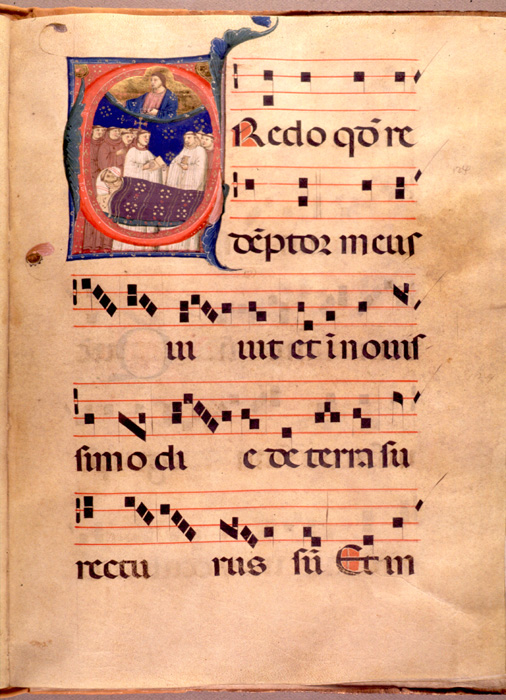 CRedo qđ re
dēptor meus
ui uit et īnouis
simo di e de terra su
rectu rus sū Et in